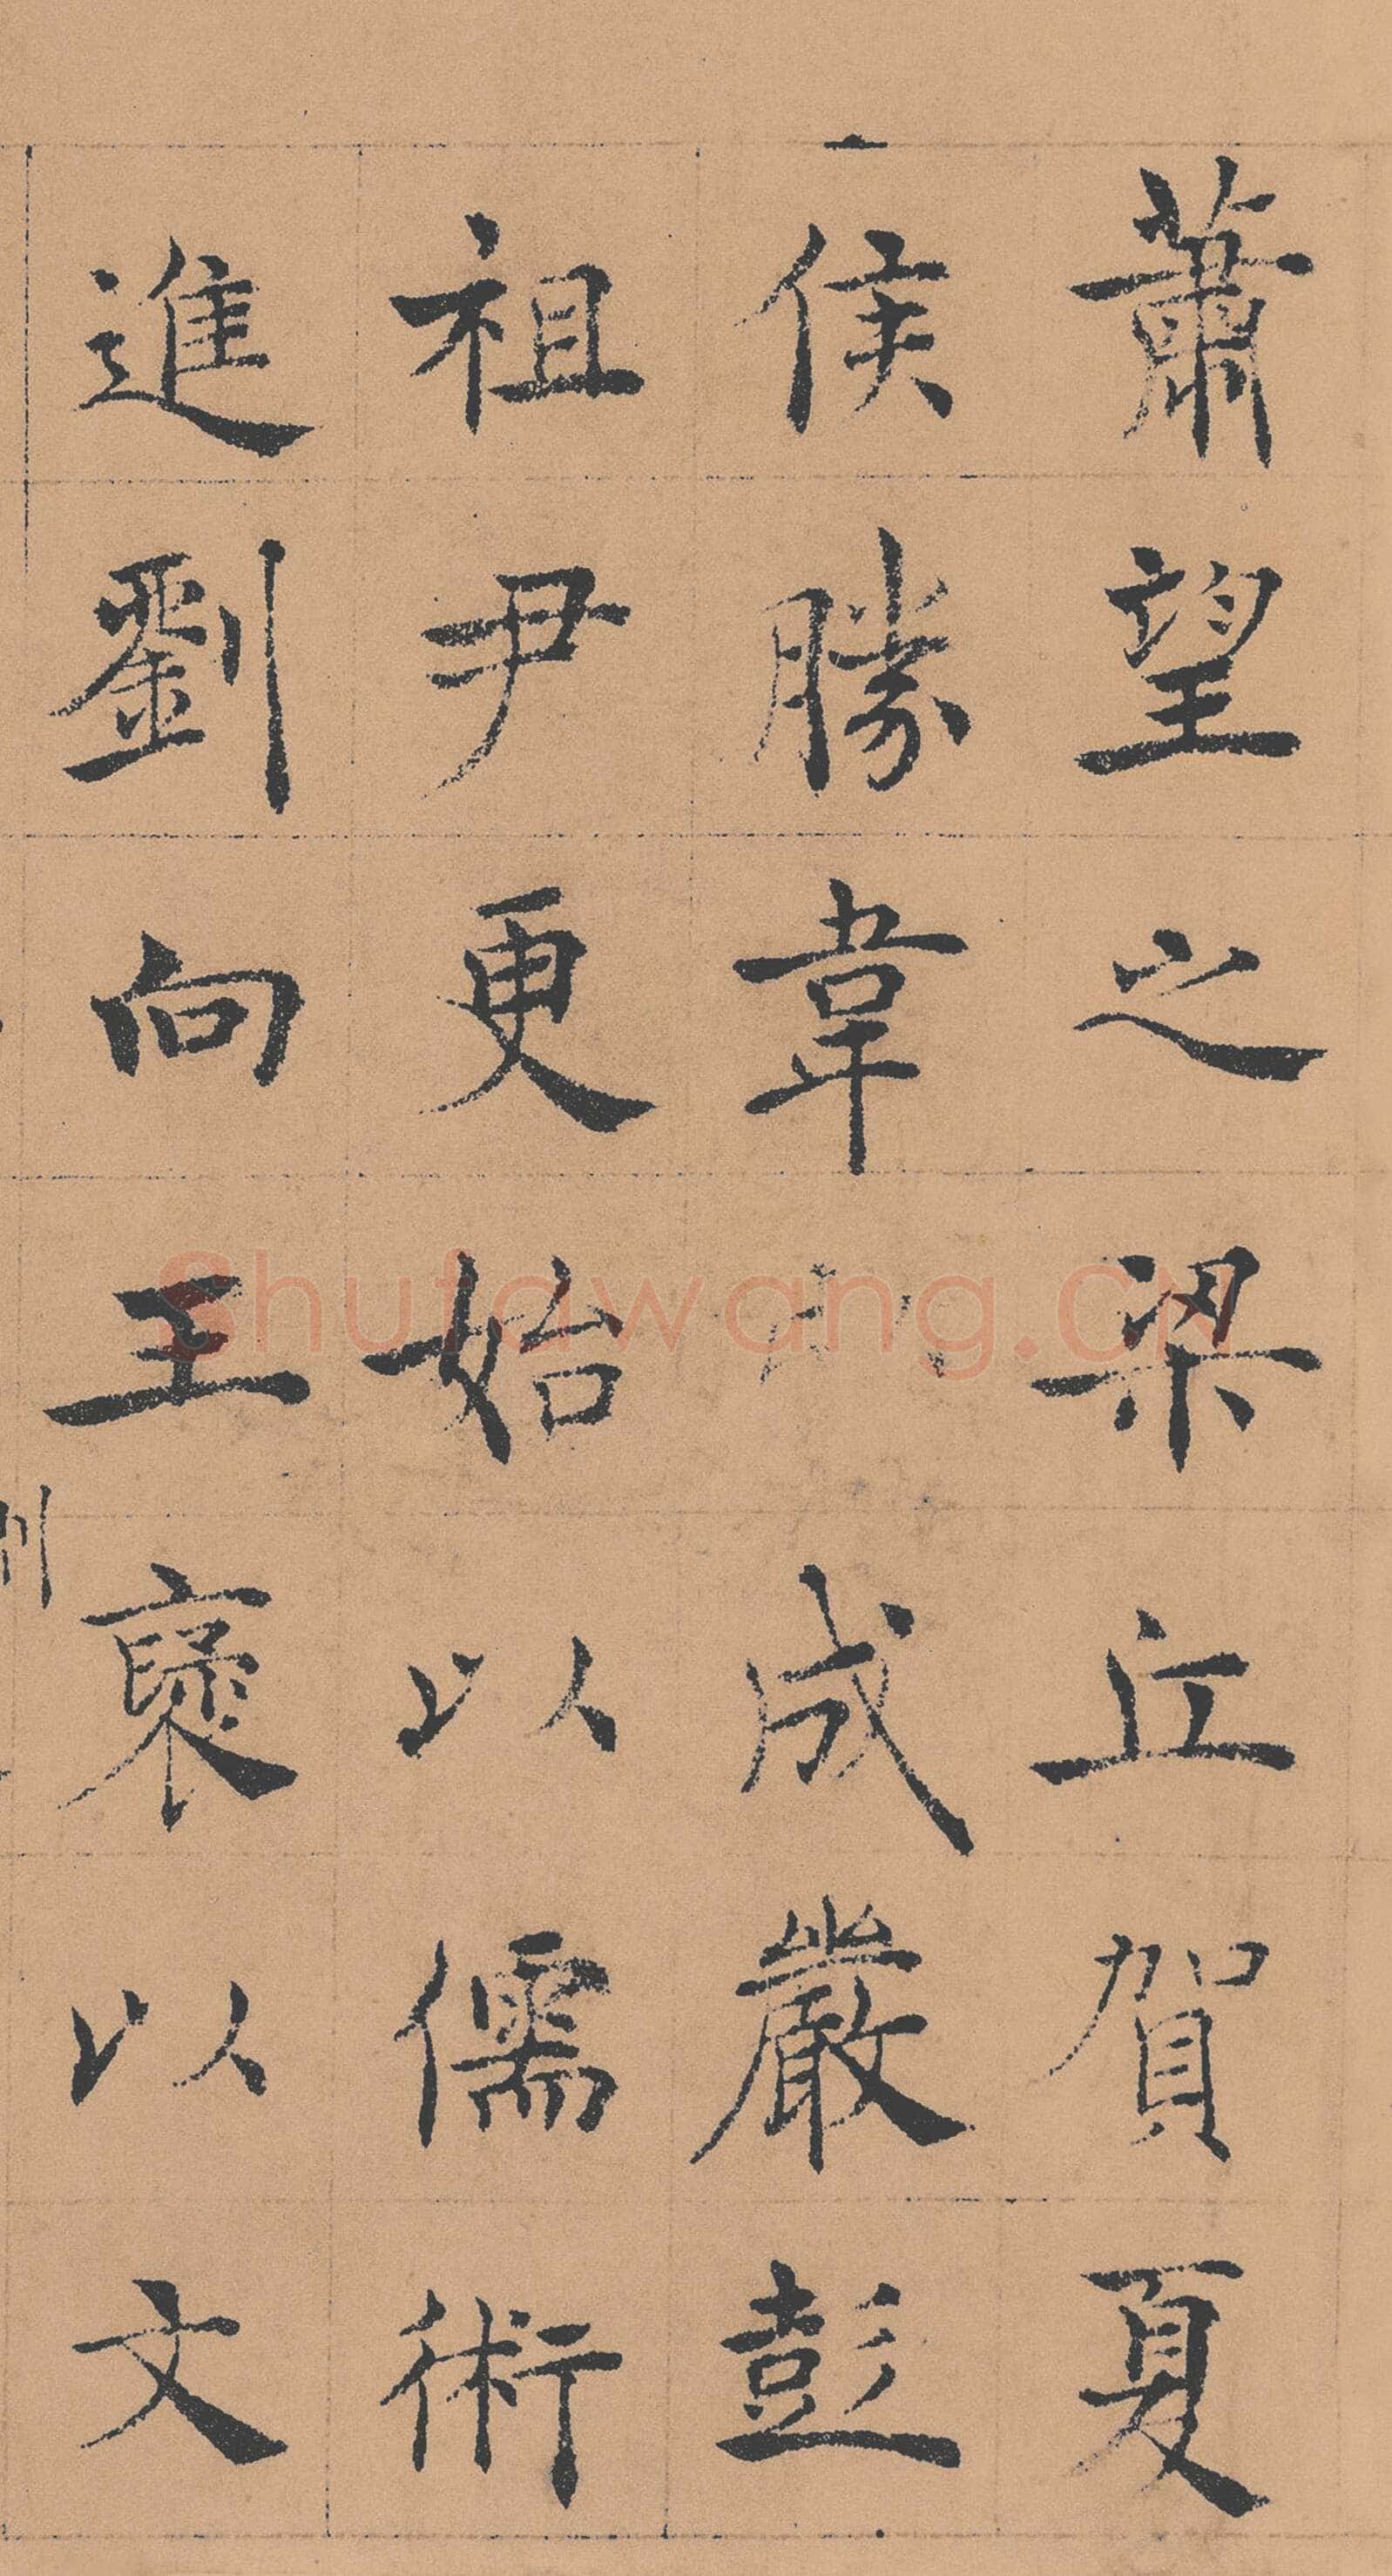 蕭望之梁丘賀夏
侯勝韋成嚴彭
祖尹更始以儒術
進劉向王褒以文
Shufawang.CN